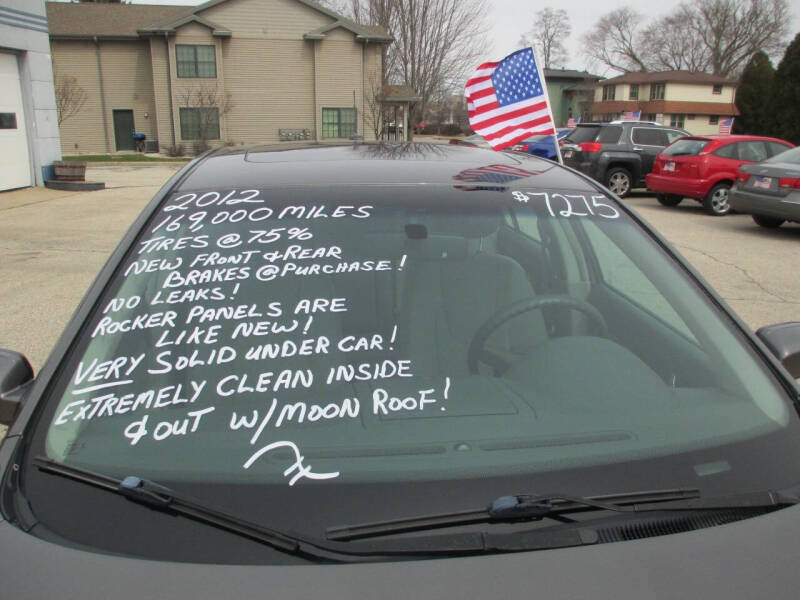 2012
$7275
169,000 MILES
TIRES @ 75%
NEW FRONT & REAR
BRAKES @ PURCHASE!
NO LEAKS!
ROCKER PANELS ARE
LIKE NEW!
VERY SOLID UNDER CAR!
EXTREMELY CLEAN INSIDE
& OUT W/MOON ROOF!